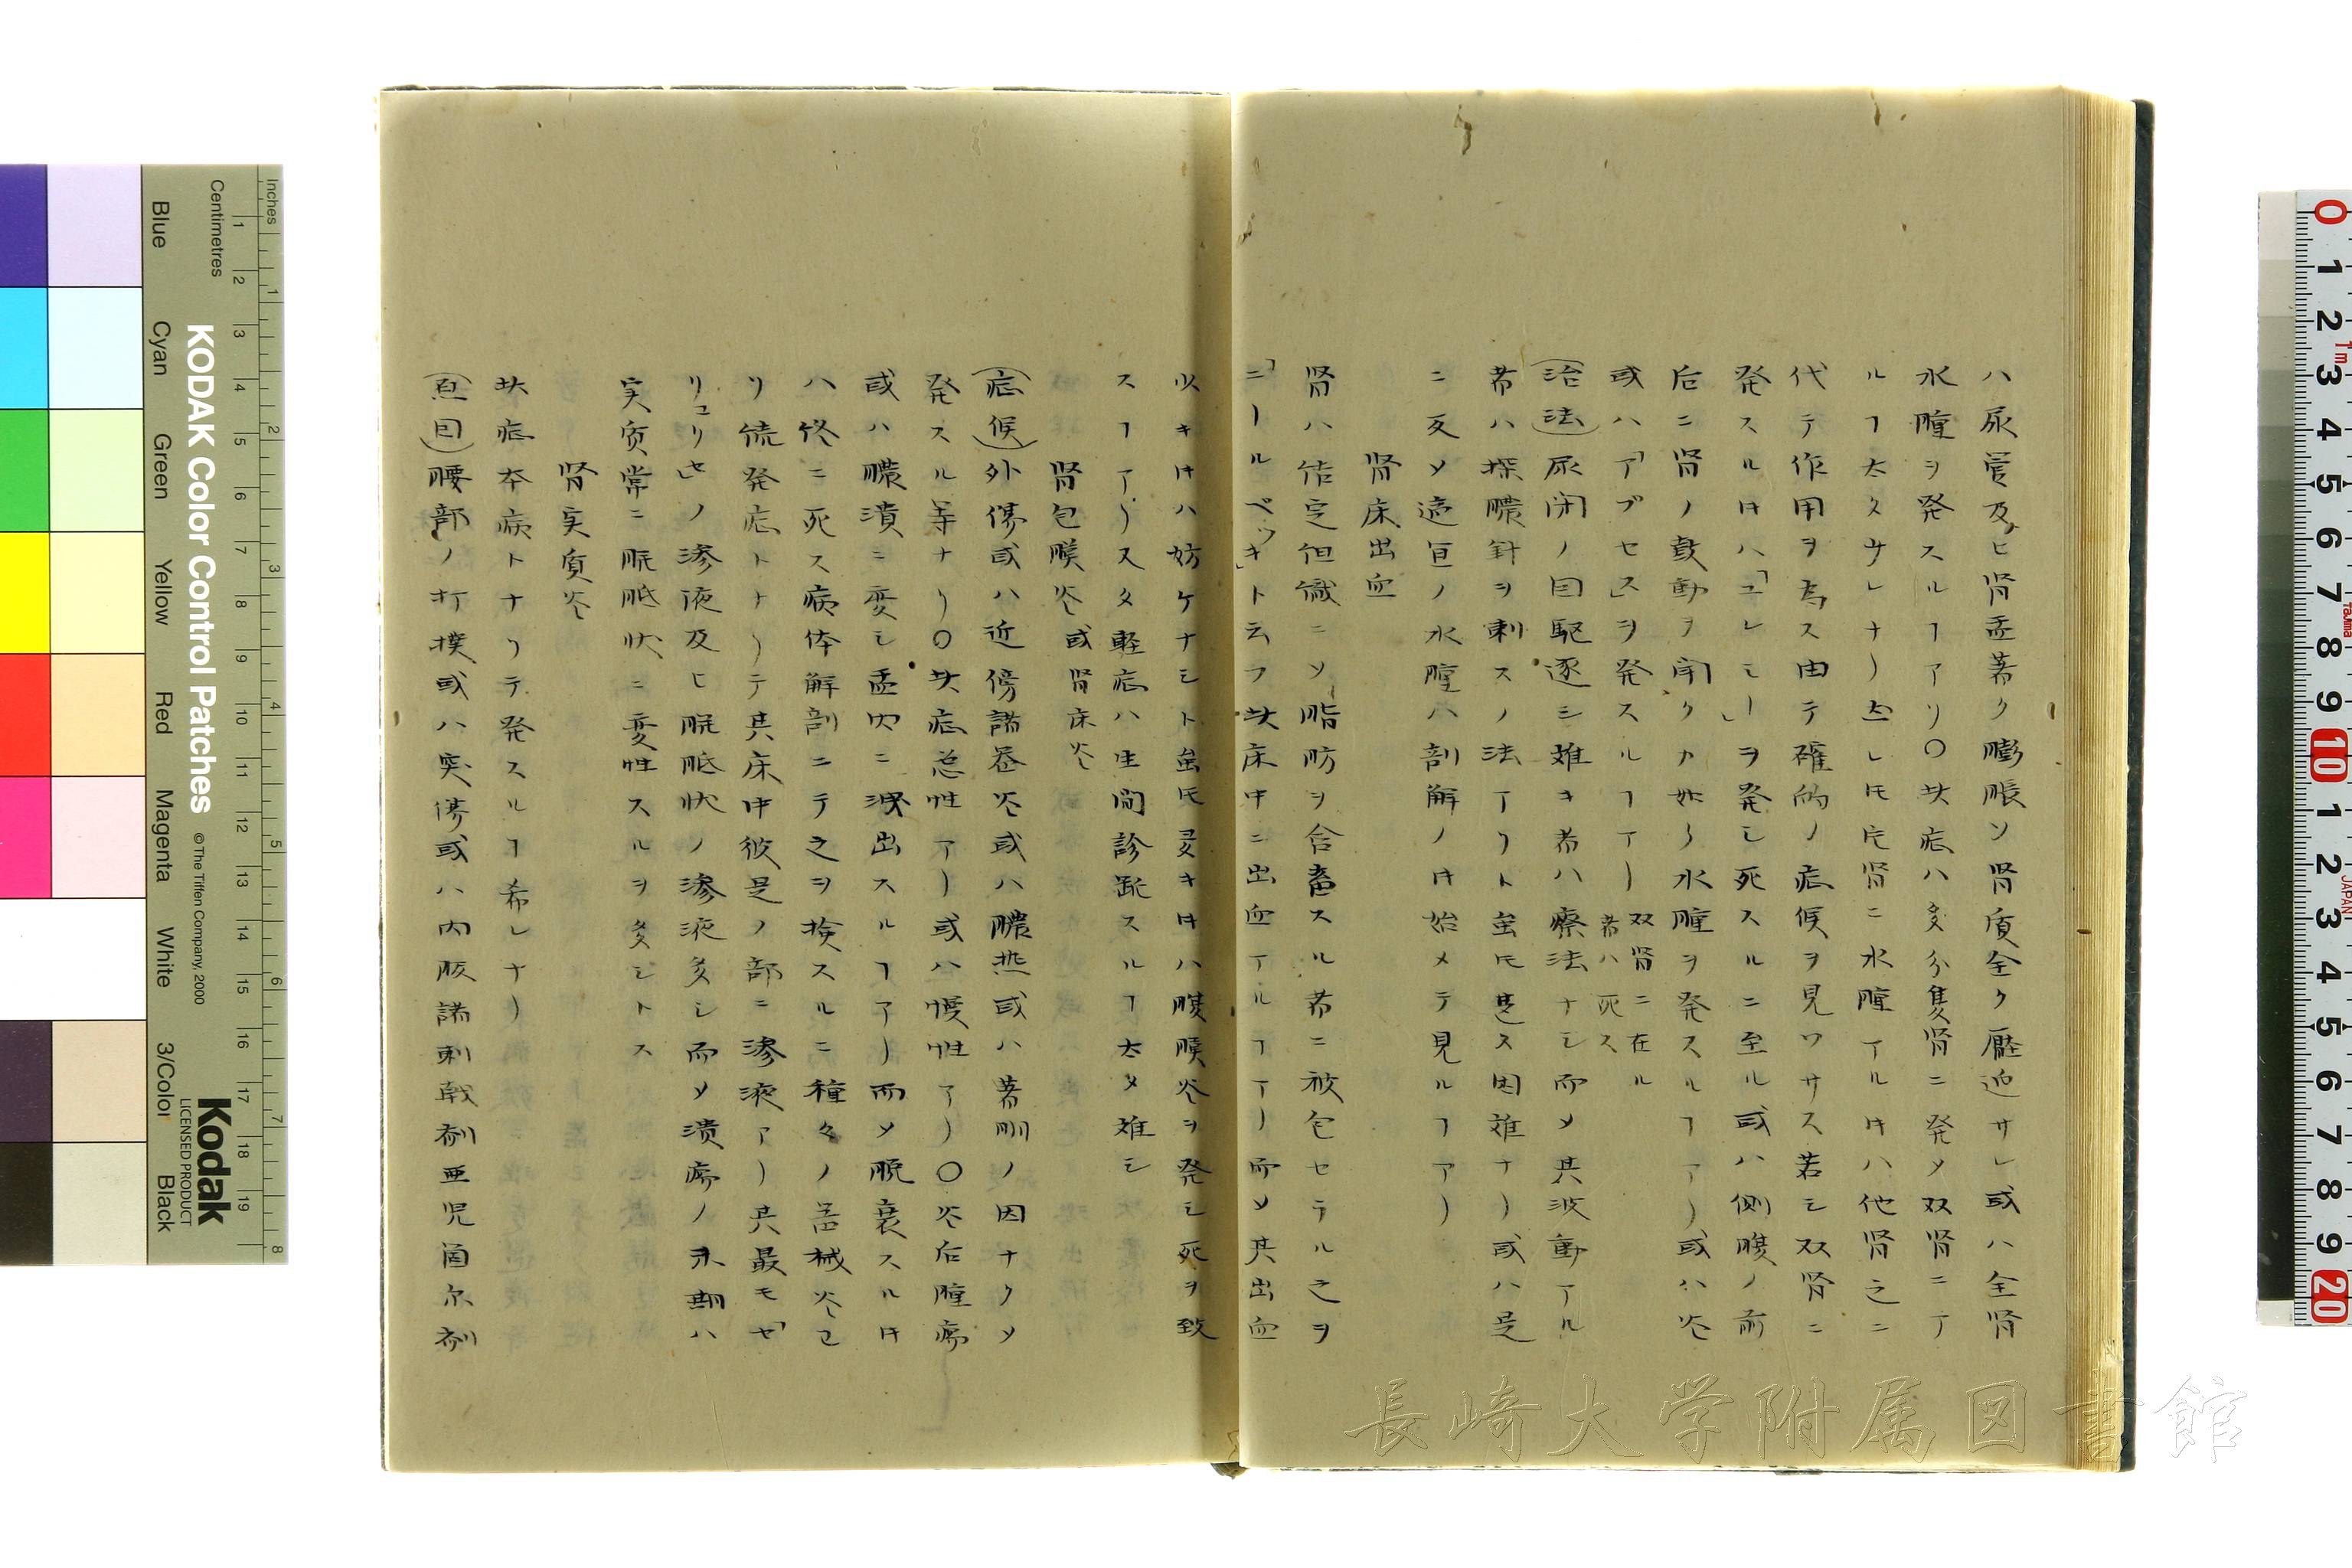 ハ尿管及ヒ腎盂著ク膨脹ソ腎質全ク壓迫サレ或ハ全腎
水腫ヲ発スルヿアリ〇此症ハ多分隻腎ニ発メ双腎ニテ
ルヿ太タサレナリ然レ𪜈片腎ニ水腫アル𪜈ハ他腎之ニ
代テ作用ヲ為ス由テ確的ノ症候ヲ見ワサス若シ双腎ニ
発スル𪜈ハ「ユレミー」ヲ発シ死スルニ至ル或ハ側腹ノ前
后ニ腎ノ鼓動ヲ聞クカ如シ水腫ヲ発スルヿアリ或ハ炎
或ハ「アブセス」ヲ発スルヿアリ双腎ニ在ル者ハ死ス
(治法)尿閉ノ因駆逐シ難キ者ハ療法ナシ而メ其波動アル
者ハ探膿針ヲ刺スノ法アリト虽𪜈甚ス困難ナリ或ハ是
ニ反メ適宜ノ水腫ハ剖解ノ𪜈始メテ見ルヿアリ
腎床出血
腎ハ佑定但織ニソ脂肪ヲ含畜スル者ニ被包セラル之ヲ
「ニールベッキ」ト云フ此床中ニ出血アルヿアリ而メ其出血
少キ𪜈ハ妨ケナシト虽𪜈多キ𪜈ハ腹膜炎ヲ発シ死ヲ致
スヿアリスタ軽症ハ生間診甄スルヿ太タ難シ
腎包膜炎或腎床炎
(症候)外傷或ハ近傍諸器炎或ハ膿热或ハ著明ノ因ナクメ
発スル等ナリ〇此症急性アリ或ハ慢性アリ〇炎后腫瘍
或ハ膿潰ニ変シ盂内ニ洩出スルヿアリ而メ脱衰スル𪜈
ハ終ニ死ス病体解剖ニテ之ヲ検スルニ種々ノ器械炎ヨ
リ続発症トナリテ其床中彼是ノ部ニ滲液アリ其最モ「セ
リユリセ」ノ滲液及ヒ脈胝状ノ滲液多シ而メ潰瘍ノ末期ハ
実質常ニ脈胝状ニ変性スルヲ多シトス
腎実質炎
此症本病トナリテ発スルヿ希レナリ
(原因)腰部ノ打撲或ハ突傷或ハ内服諸刺戟剤亜児箇尓剤
KODAK Color Control Patches
© The Tiffen Company, 2000
Kodak
LICENSED PRODUCT
Inches
Centimetres
Blue
Cyan
Green
Yellow
Red
Magenta
White
3/Color
Black
長崎大学附属図書館